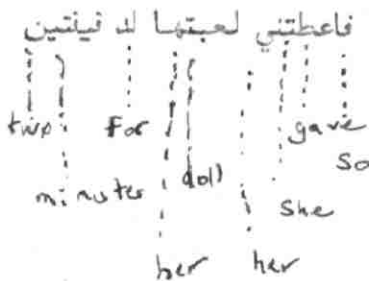 فاعطتني لعبتها لد قيقتين
two for gave
so
minutes doll she
her her